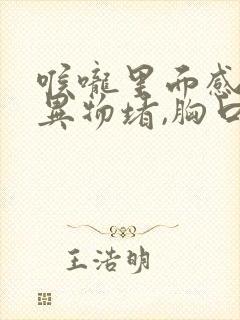 喉咙里而感
异物堵,胸口
王浩明